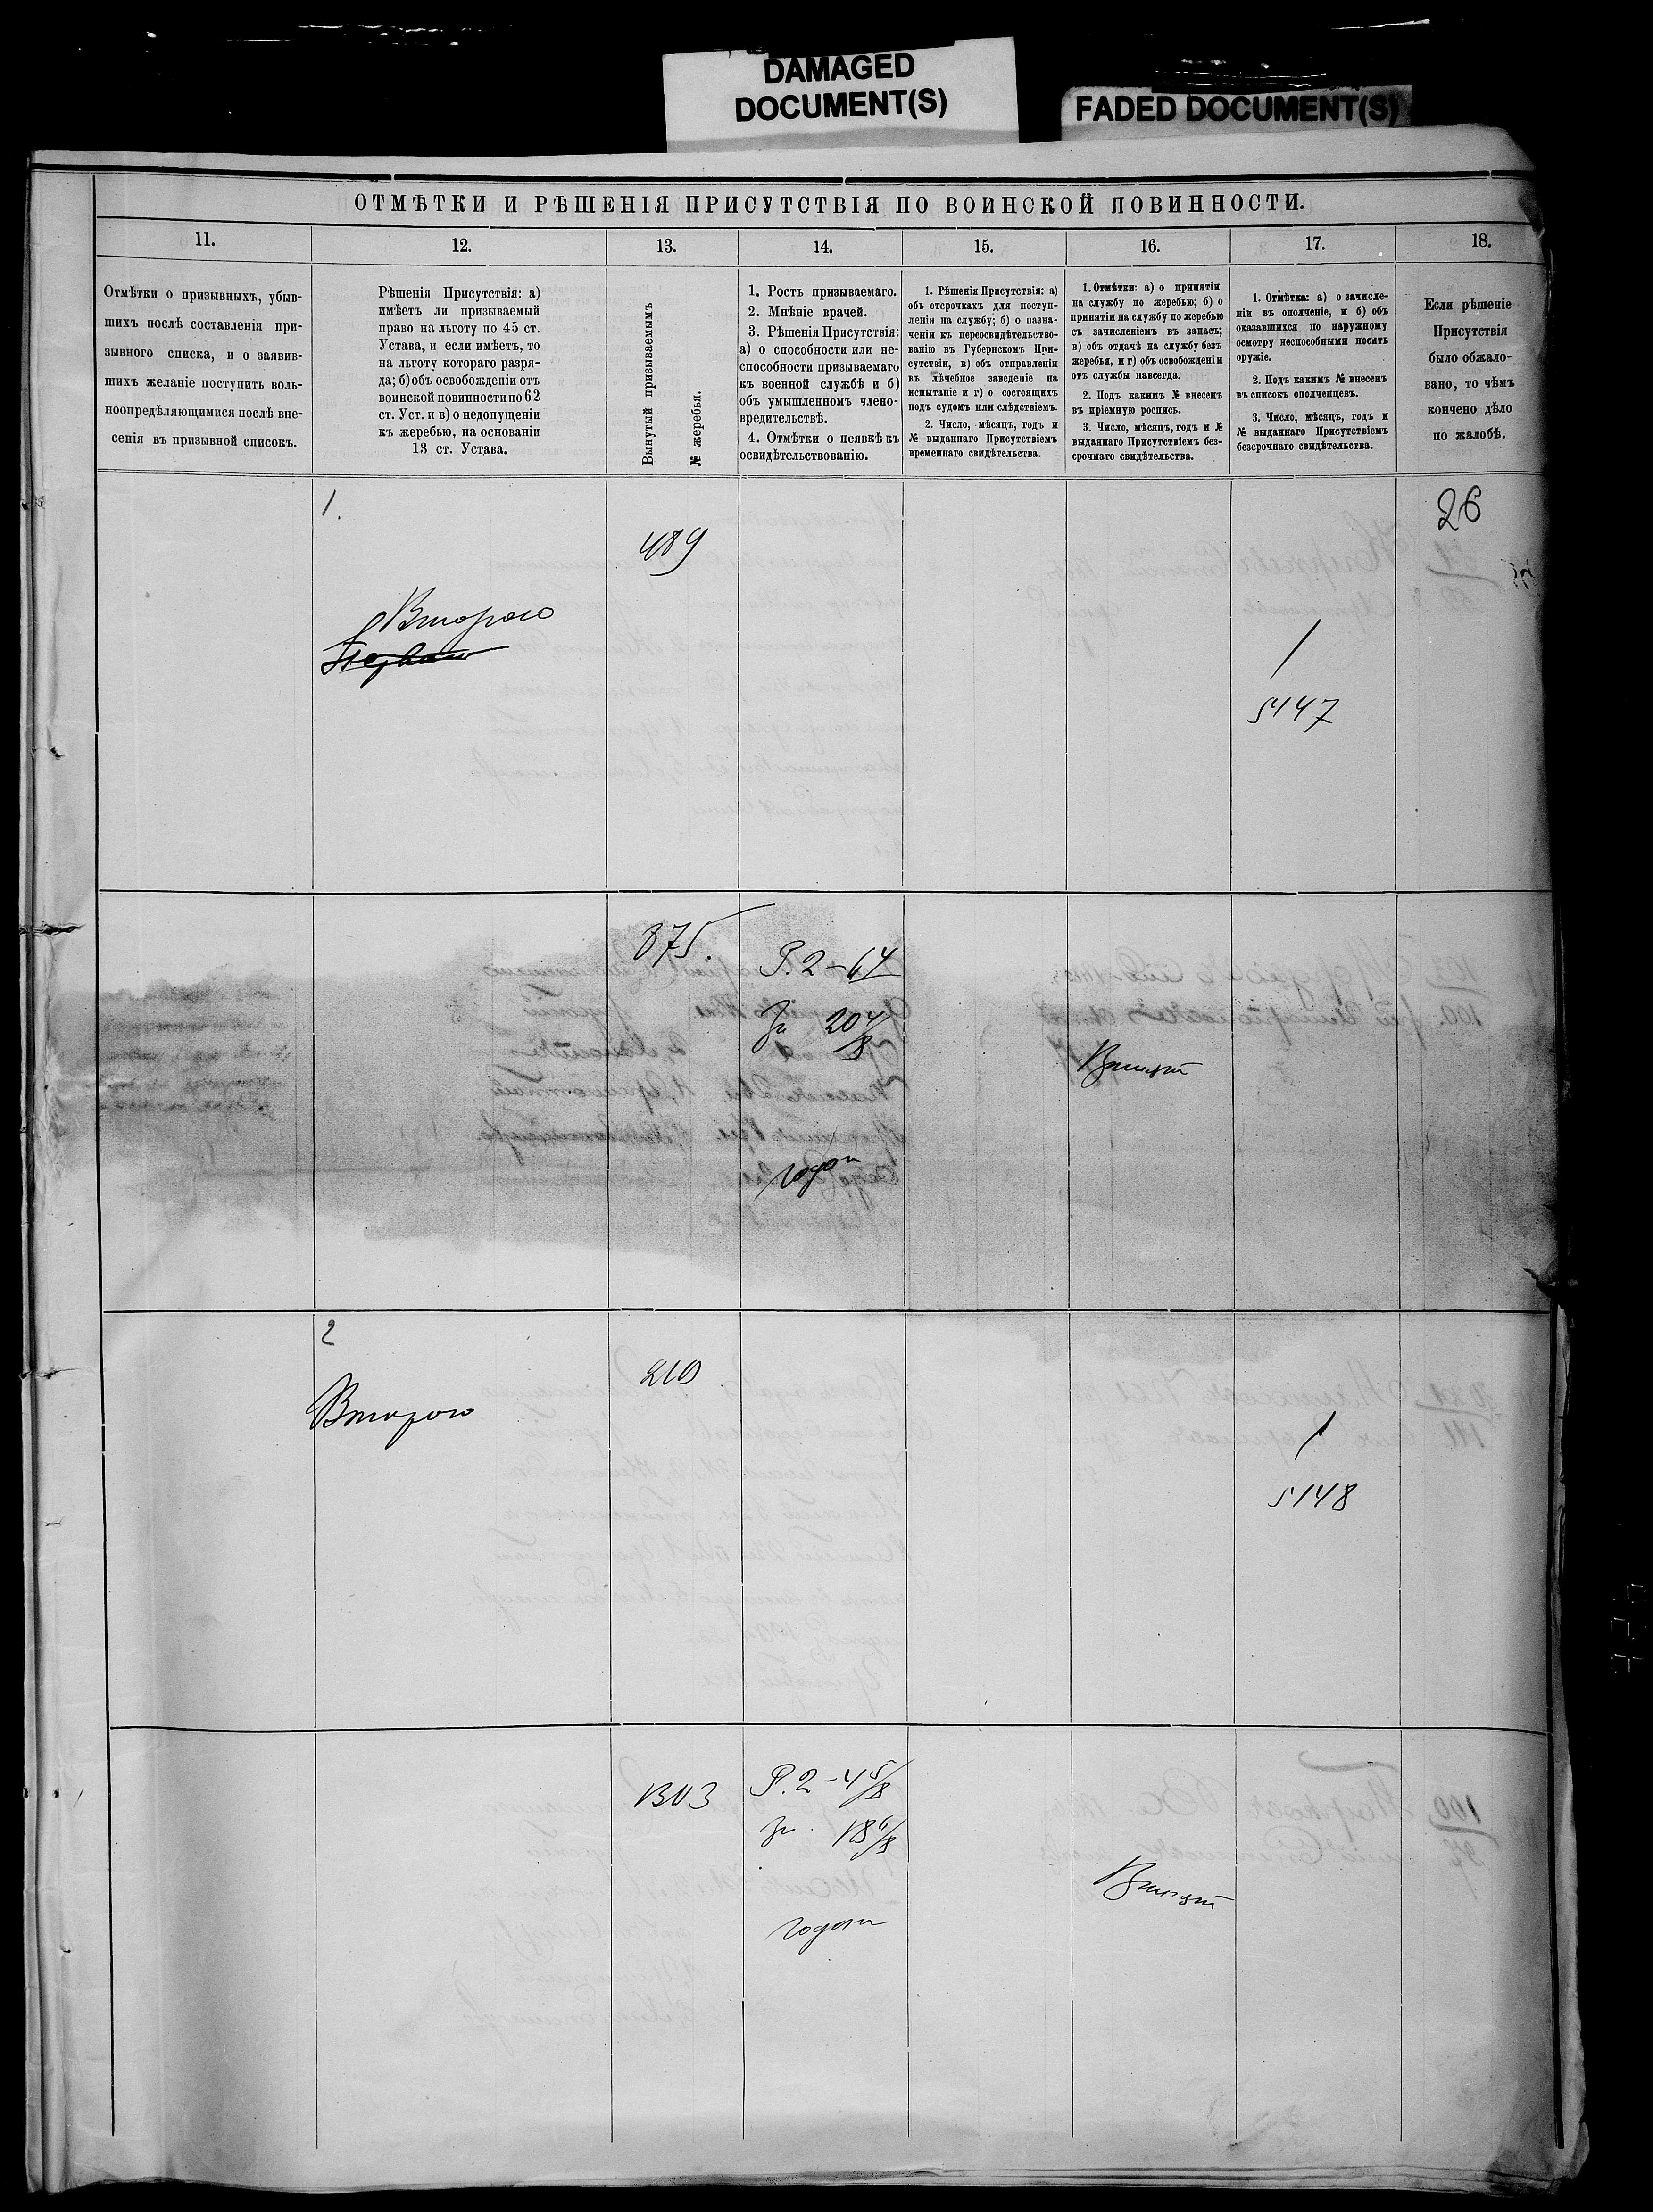 DAMAGED
DOCUMENT(S)
FADED DOCUMENT(S)
ОТМѢТКИ И РѢШЕНІЯ ПРИСУТСТВІЯ ПО ВОИНСКОЙ ПОВИННОСТИ.
11.
12.
13.
14.
15.
16.
17.
18.
Отмѣтки о призывныхъ, убыв-
шихъ послѣ составленія при-
зывного списка, и о заявив-
шихъ желаніе поступить воль-
ноопредѣляющимися послѣ вне-
сенія въ призывной списокъ.
Рѣшенія Присутствія: а)
имѣетъ ли призываемый
право на льготу по 45 ст.
Устава, и если имѣетъ, то
на льготу котораго разря-
да; б) объ освобожденіи отъ
воинской повинности по 62
ст. Уст. и в) о недопущеніи
къ жеребью, на основаніи
13 ст. Устава.
Вынутый призываемымъ
№ жеребья.
1. Ростъ призываемаго.
2. Мнѣніе врачей.
3. Рѣшенія Присутствія:
а) о способности или не-
способности призываемаго
къ военной службѣ и б)
объ умышленномъ члено-
вредительствѣ.
4. Отмѣтки о неявкѣ къ
освидѣтельствованію.
1. Рѣшенія Присутствія: а)
объ отсрочкахъ для поступ-
ленія на службу; б) о назна-
ченіи къ переосвидѣтельство-
ванію въ Губернскомъ При-
сутствіи, в) объ отправленіи
въ лѣчебное заведеніе на
испытаніе и г) о состоящихъ
подъ судомъ или слѣдствіемъ.
2. Число, мѣсяцъ, годъ и
№ выданнаго Присутствіемъ
временнаго свидѣтельства.
1. Отмѣтки: а) о принятіи
на службу по жеребью; б) о
принятіи на службу по жеребью
съ зачисленіемъ въ запасъ;
в) объ отдачѣ на службу безъ
жеребья, и г) объ освобожденіи
отъ службы навсегда.
2. Подъ какимъ № внесенъ
въ пріемную роспись.
3. Число, мѣсяцъ, годъ и №
выданнаго Присутствіемъ без-
срочнаго свидѣтельства.
1. Отмѣтка: а) о зачисле-
ніи въ ополченіе, и б) объ
оказавшихся по наружному
осмотру неспособными носить
оружіе.
2. Подъ какимъ № внесенъ
въ списокъ ополченцевъ.
3. Число, мѣсяцъ, годъ и
№ выданнаго Присутствіемъ
безсрочнаго свидѣтельства.
Если рѣшеніе
Присутствія
было обжало-
вано, то чѣмъ
кончено дѣло
по жалобѣ.
26
1.
489
Второго
Перваго
1
5147
875.
Р. 2-64
20 4/8
годен
2
210
Второго
1
5148
Р. 2-4 5/8
18 6/8
годен